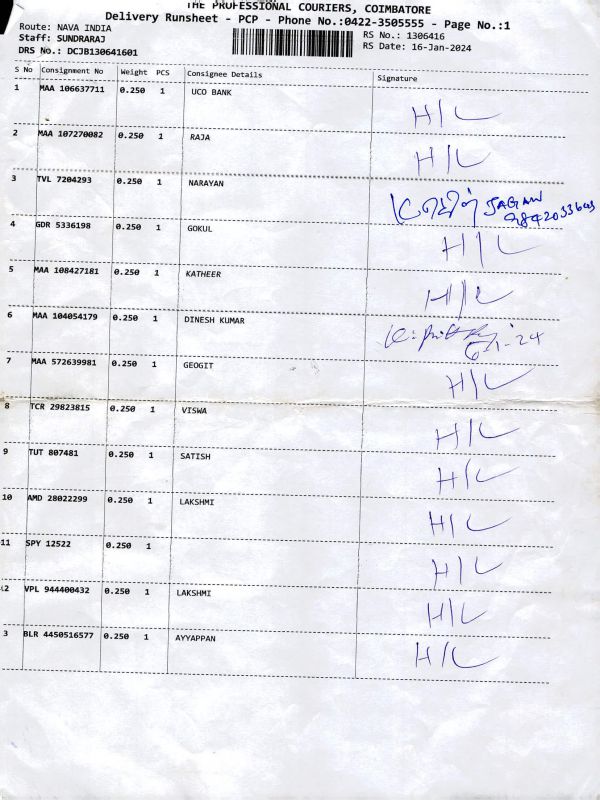 THE PROFESSIONAL COURIERS, COIMBATORE
Delivery Runsheet - PCP - Phone No.:0422-3505555 - Page No.:1
Route: NAVA INDIA
RS No.: 1306416
Staff: SUNDRARAJ
RS Date: 16-Jan-2024
DRS No.: DCJB130641601
S No Consignment No Weight PCS Consignee Details Signature
1 MAA 106637711 0.250 1 UCO BANK H/L
2 MAA 107270082 0.250 1 RAJA H/L
3 TVL 7204293 0.250 1 NARAYAN JAGAN
4 GDR 5336198 0.250 1 GOKUL H/L
5 MAA 108427181 0.250 1 KATHEER H/L
6 MAA 104054179 0.250 1 DINESH KUMAR
7 MAA 572639981 0.250 1 GEOGIT H/L
8 TCR 29823815 0.250 1 VISWA H/L
9 TUT 807481 0.250 1 SATISH H/L
10 AMD 28022299 0.250 1 LAKSHMI H/L
11 SPY 12522 0.250 1 H/L
12 VPL 944400432 0.250 1 LAKSHMI H/L
3 BLR 4450516577 0.250 1 AYYAPPAN H/L